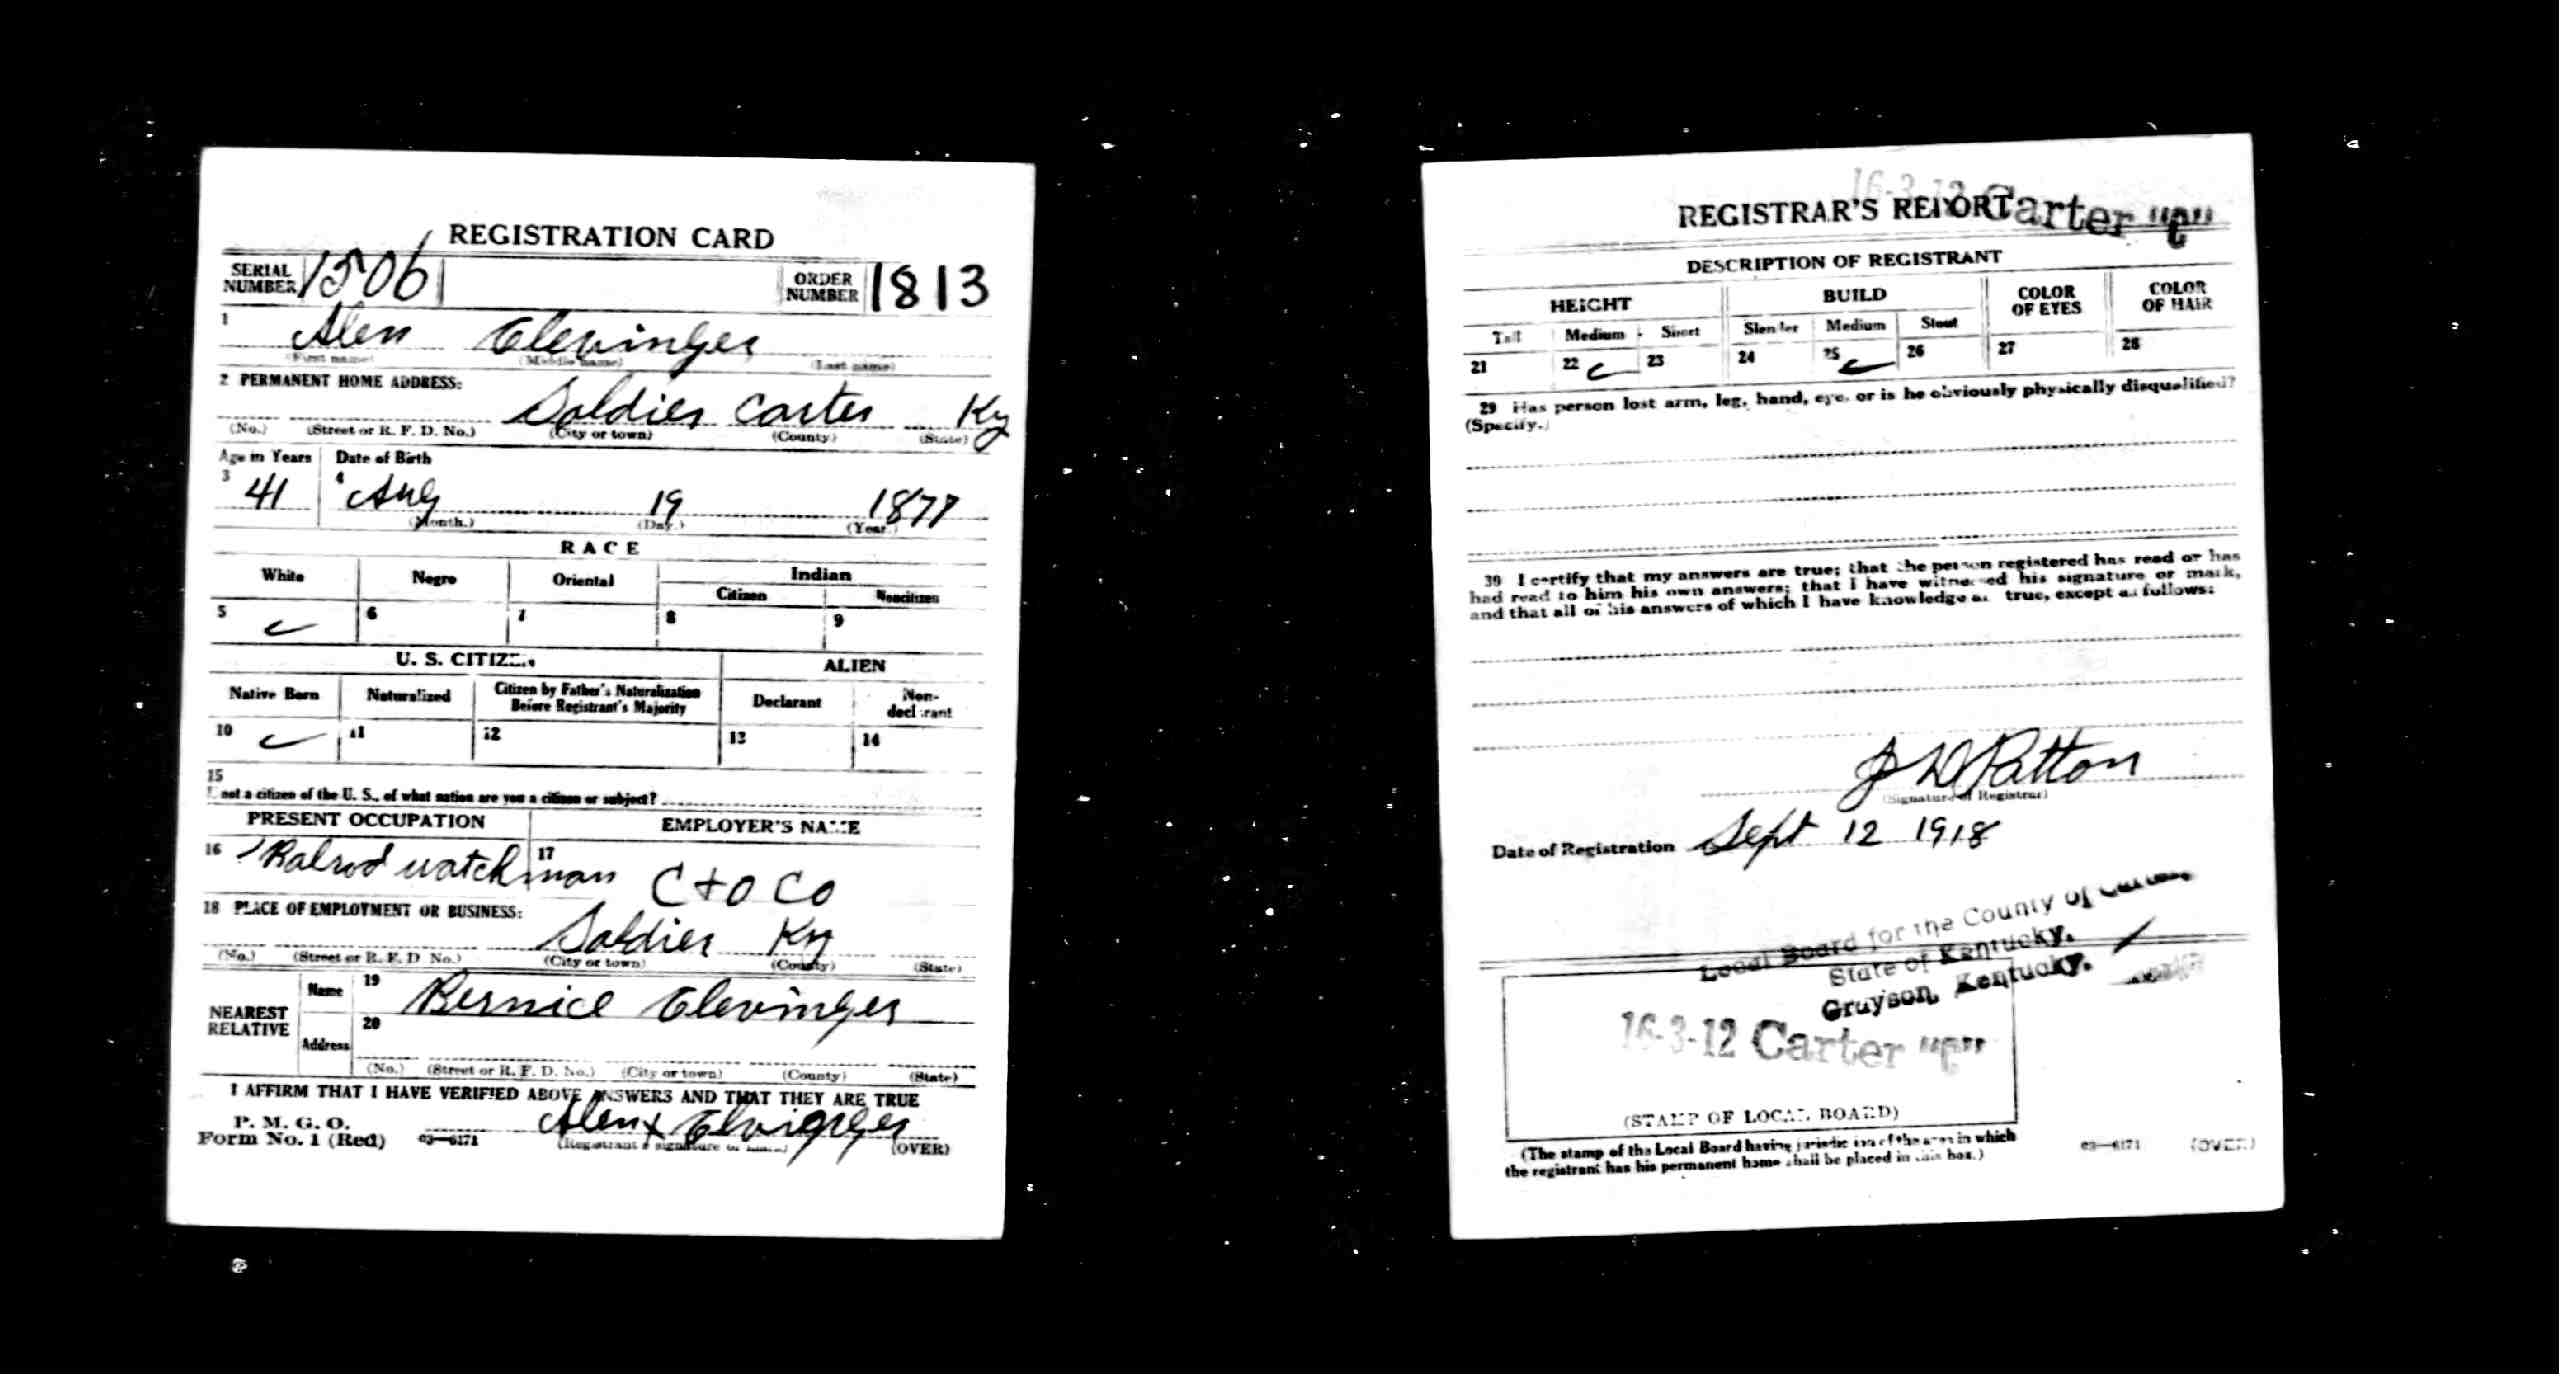 REGISTRATION CARD
SERIAL NUMBER 1506 ORDER NUMBER 1813
1 Alen Clevinger
(First name) (Middle name) (Last name)
2 PERMANENT HOME ADDRESS:
Soldier Carter Ky
(No.) (Street or R. F. D. No.) (City or town) (County) (State)
Age in Years Date of Birth
3 41 4 Aug 19 1877
(Month.) (Day.) (Year.)
RACE
White Negro Oriental Indian
Citizen Noncitizen
5 6 7 8 9
U. S. CITIZEN ALIEN
Native Born Naturalized Citizen by Father's Naturalization Before Registrant's Majority Declarant Non-declarant
10 11 12 13 14
15
If not a citizen of the U. S., of what nation are you a citizen or subject?
PRESENT OCCUPATION EMPLOYER'S NAME
16 Ralrod watchman 17 C + O Co
18 PLACE OF EMPLOYMENT OR BUSINESS:
Soldier Ky
(No.) (Street or R. F. D. No.) (City or town) (County) (State)
NEAREST RELATIVE Name 19 Bernice Clevinger
Address 20
(No.) (Street or R. F. D. No.) (City or town) (County) (State)
I AFFIRM THAT I HAVE VERIFIED ABOVE ANSWERS AND THAT THEY ARE TRUE
P. M. G. O.
Form No. 1 (Red) 03—6171 (Registrant's signature or mark) (OVER)
16-3-12 Carter "A"
REGISTRAR'S REPORT
DESCRIPTION OF REGISTRANT
HEIGHT BUILD COLOR OF EYES COLOR OF HAIR
Tall Medium Short Slender Medium Stout
21 22 23 24 25 26 27 28
29 Has person lost arm, leg, hand, eye, or is he obviously physically disqualified?
(Specify.)
30 I certify that my answers are true; that the person registered has read or has
had read to him his own answers; that I have witnessed his signature or mark,
and that all of his answers of which I have knowledge are true, except as follows:
J D Patton
(Signature of Registrar)
Date of Registration Sept 12 1918
Local Board for the County of Carter,
State of Kentucky.
Grayson, Kentucky.
16-3-12 Carter "A"
(STAMP OF LOCAL BOARD)
(The stamp of the Local Board having jurisdiction of the area in which
the registrant has his permanent home shall be placed in this box.)
03—6171 (OVER)